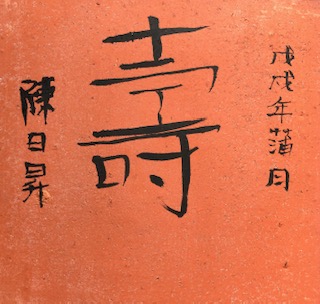 戊戌年蒲月
壽
陳日昇